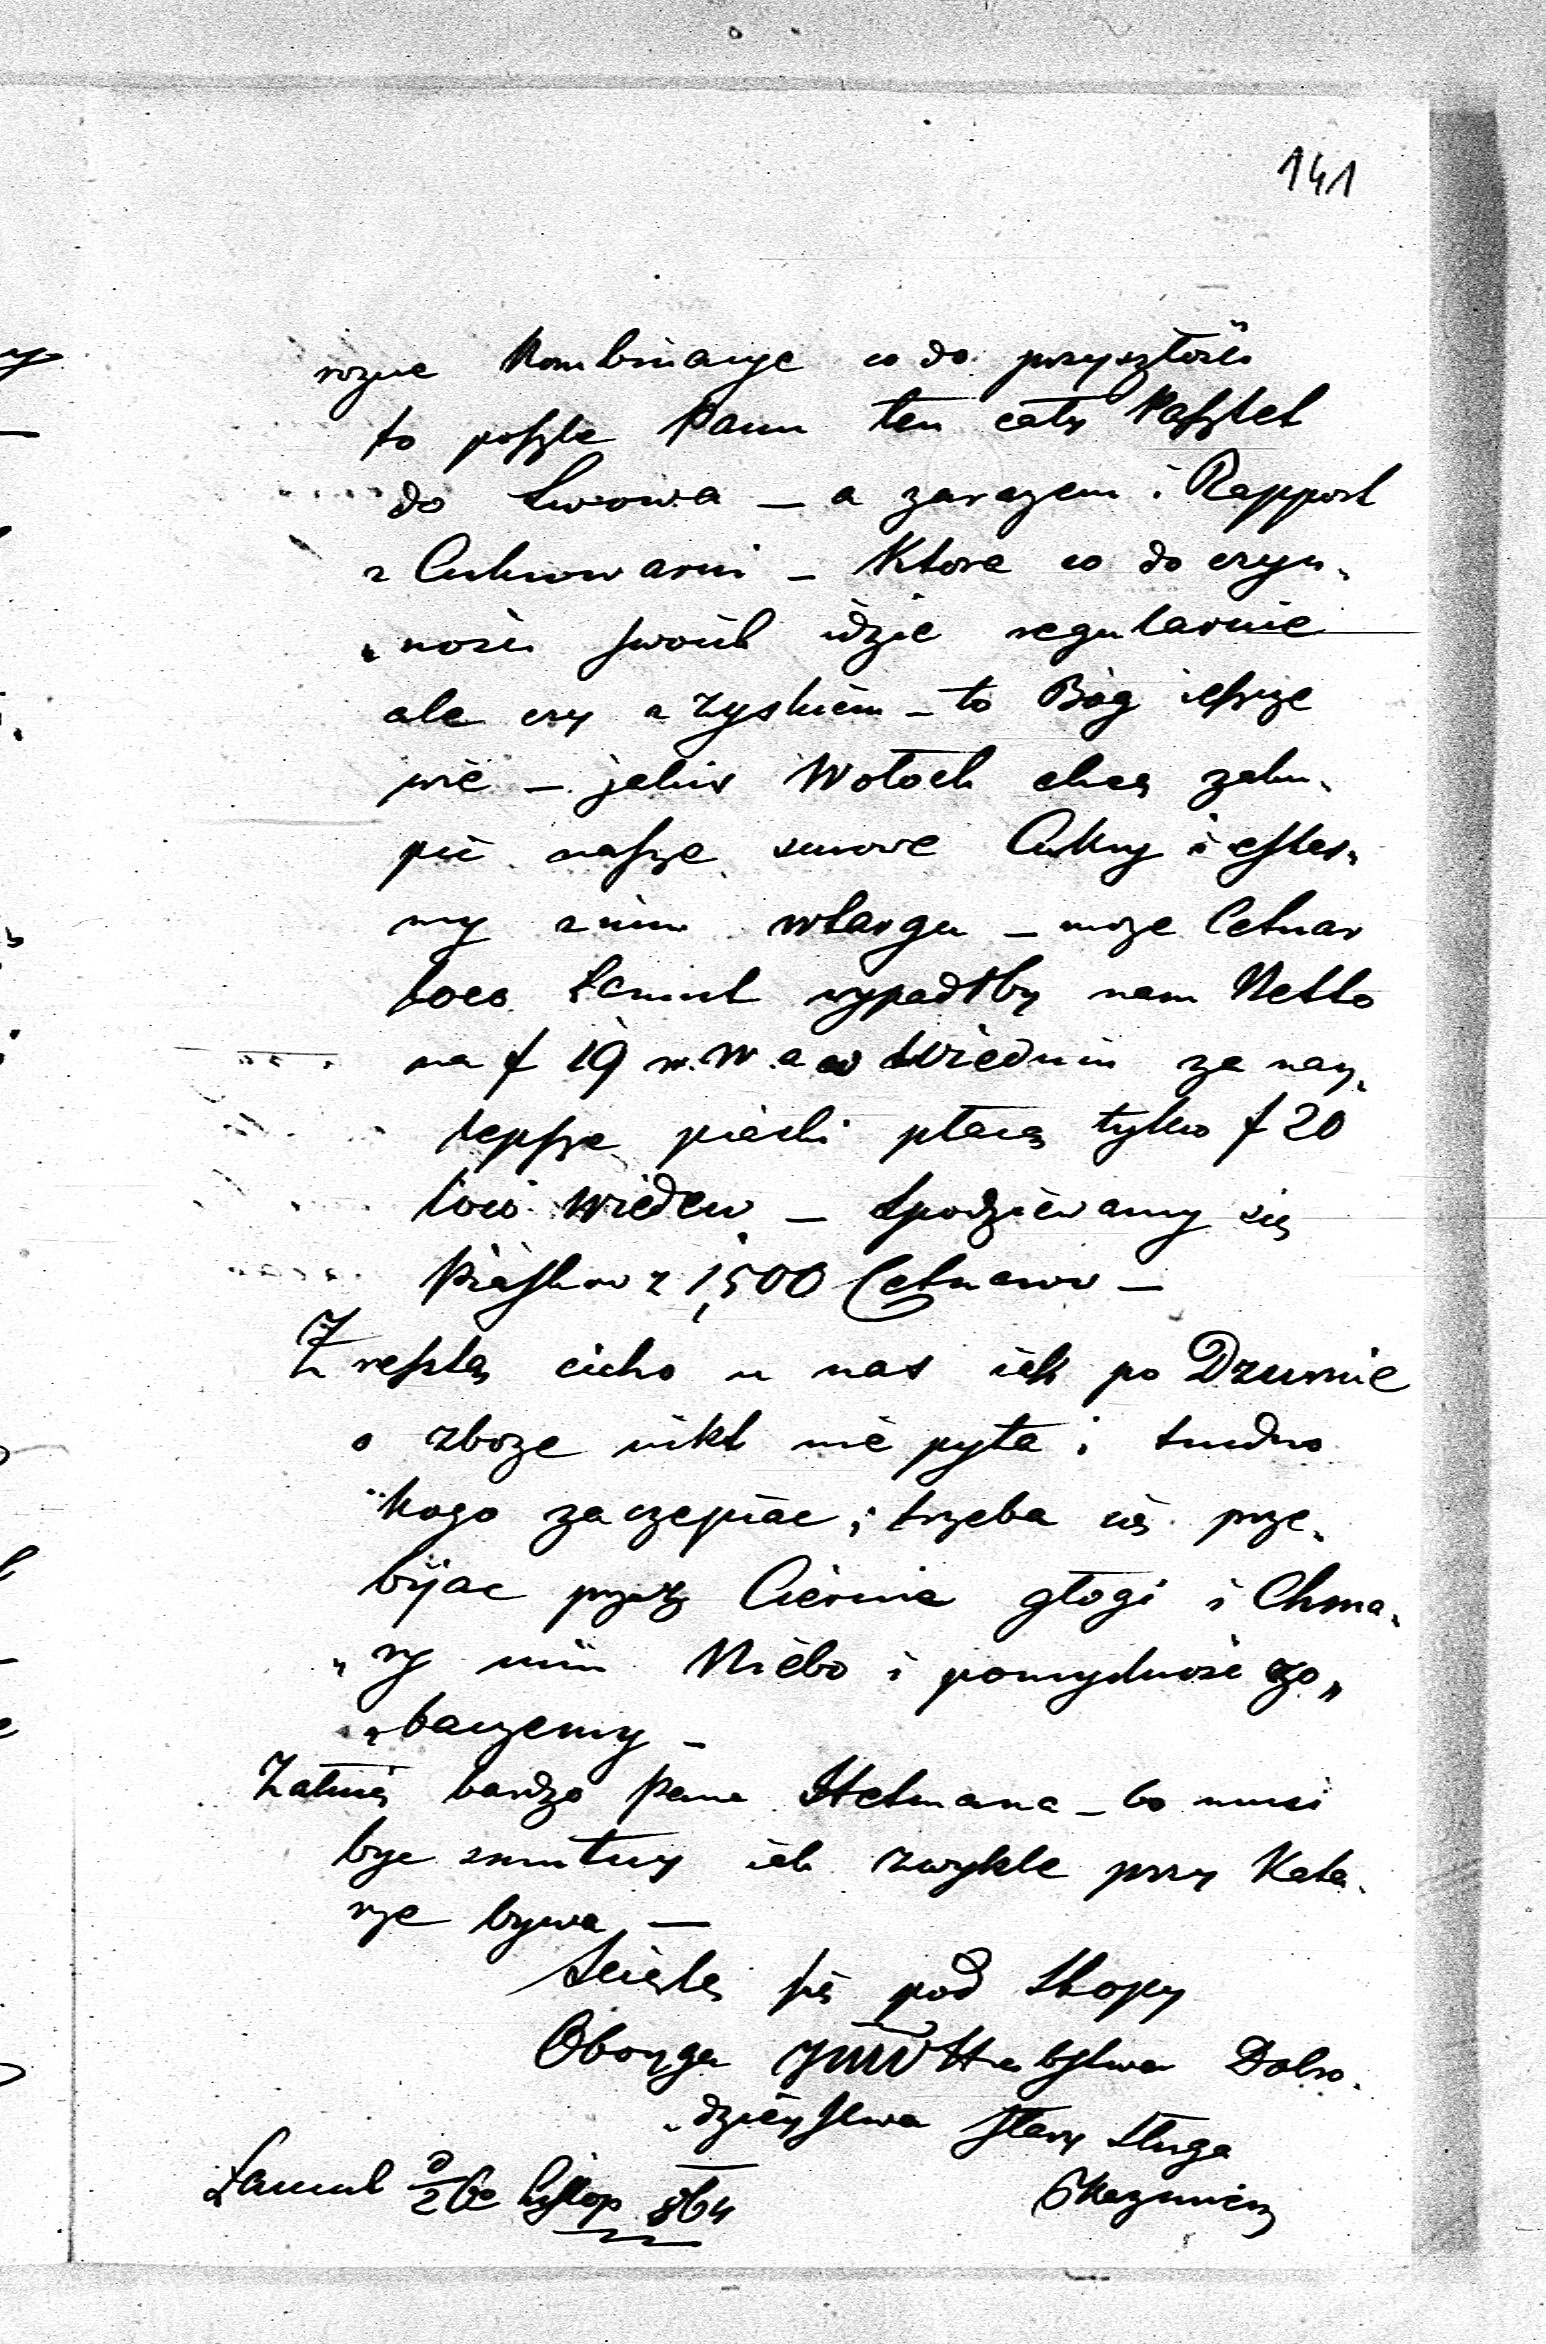 141
rozne Kombinacye co do przyszłości
to poszle Panu ten cały Pasztet
do Lwowa — a zarazem i Rapport
z Cukrowarni — Ktora co do czyn„
„ności swoich idzie regularnie
ale czy z zyskiem — to Bóg ieszcze
wie — jakiś Wołoch chcą zaku„
pić nasze surowe Cukry i esteś„
my z nim wtargu — może Cetnar
loco Łancut wypadłby nam Netto
na f 19 w. W. a w Wiedniu za nay„
lepsze piaski płacą tylko f 20
loco Wiedeń — Spodziewamy się
Piasków z 1,500 Cetnarow —
Z resztą cicho u nas iak po Dzumie
o zboze nikt nie pyta i trudno
kogo zaczepiac, trzeba się prze„
bijac przez Ciernie głogi i Chma„
„ry nim Niebo i pomyslność zo„
„baczemy —
Załuię bardzo Pana Hetmana — bo musi
byc smutny iak zwykle przy Kata„
rze bywa —
Scielę się pod Stopy
Oboyga JWW Hrabstwa Dobro„
„dzieystwa Stary Sługa
Łancut d 26 Listop 864
Kazimierz